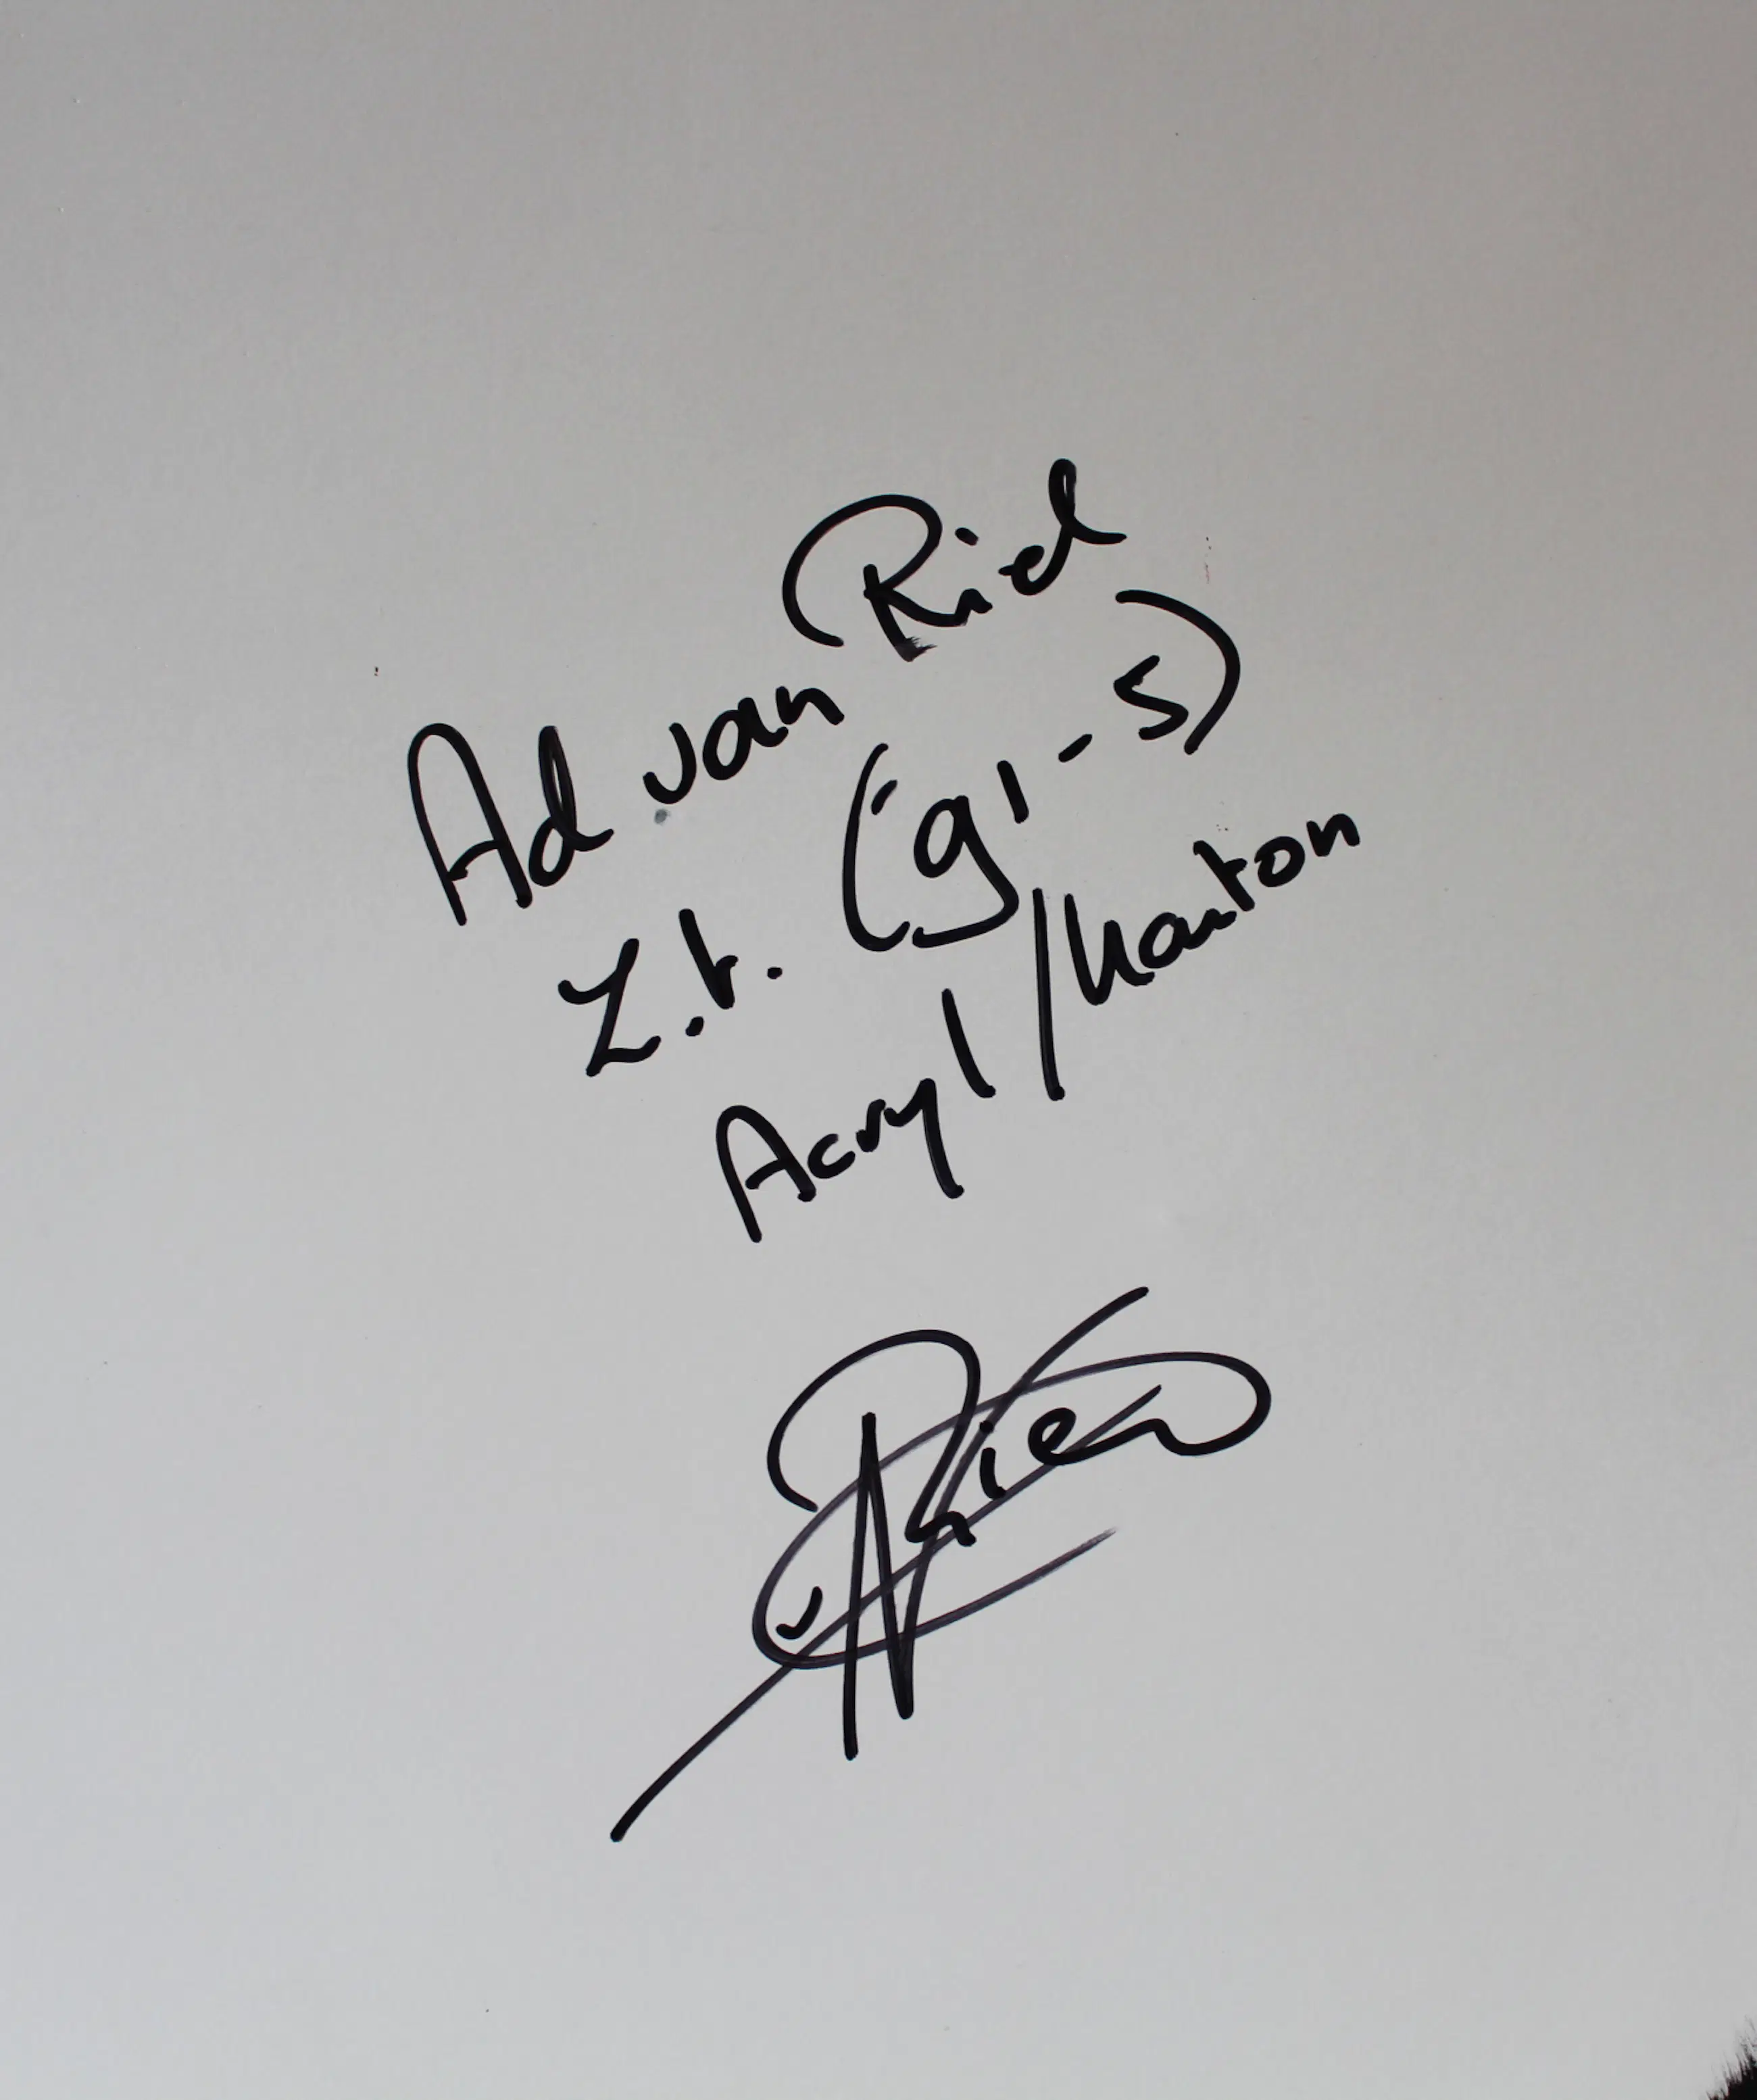 Ad van Riel
Z.t. ('91-5)
Acryl/Karton
AvRiel